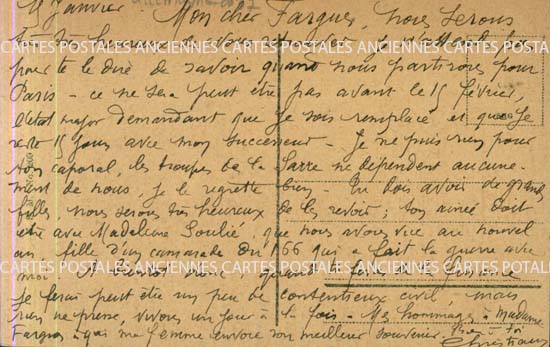 15 Janvier Mon cher Fargues, nous serons
très heureux de
pour te le dire de savoir quand nous partirons pour
Paris - ce ne sera peut être pas avant le 15 février,
l'état major demandant que je sois remplacé et que je
reste 15 jours avec mon successeur - Je ne puis rien pour
ton caporal, les troupes de la Sarre ne dépendent aucune-
ment de nous, je le regrette bien - Tu dois avoir de grandes
filles, nous serons très heureux de les revoir ; ton ainée doit
être avec Madeleine Soulié, que nous avons vue au nouvel
an, fille d'un camarade du 166 qui a fait la guerre avec
moi
Je ferai peut être un peu de contentieux civil, mais
rien ne presse, vivons un jour à la fois - Mes hommages à Madame
Fargues - que ma femme envoie son meilleur souvenir. Bien à toi
Christian
CARTES POSTALES ANCIENNES CARTES POSTALES ANCIENNES CARTES POSTALES ANCIENNES
CARTES POSTALES ANCIENNES CARTES POSTALES ANCIENNES CARTES POSTALES ANCIENNES